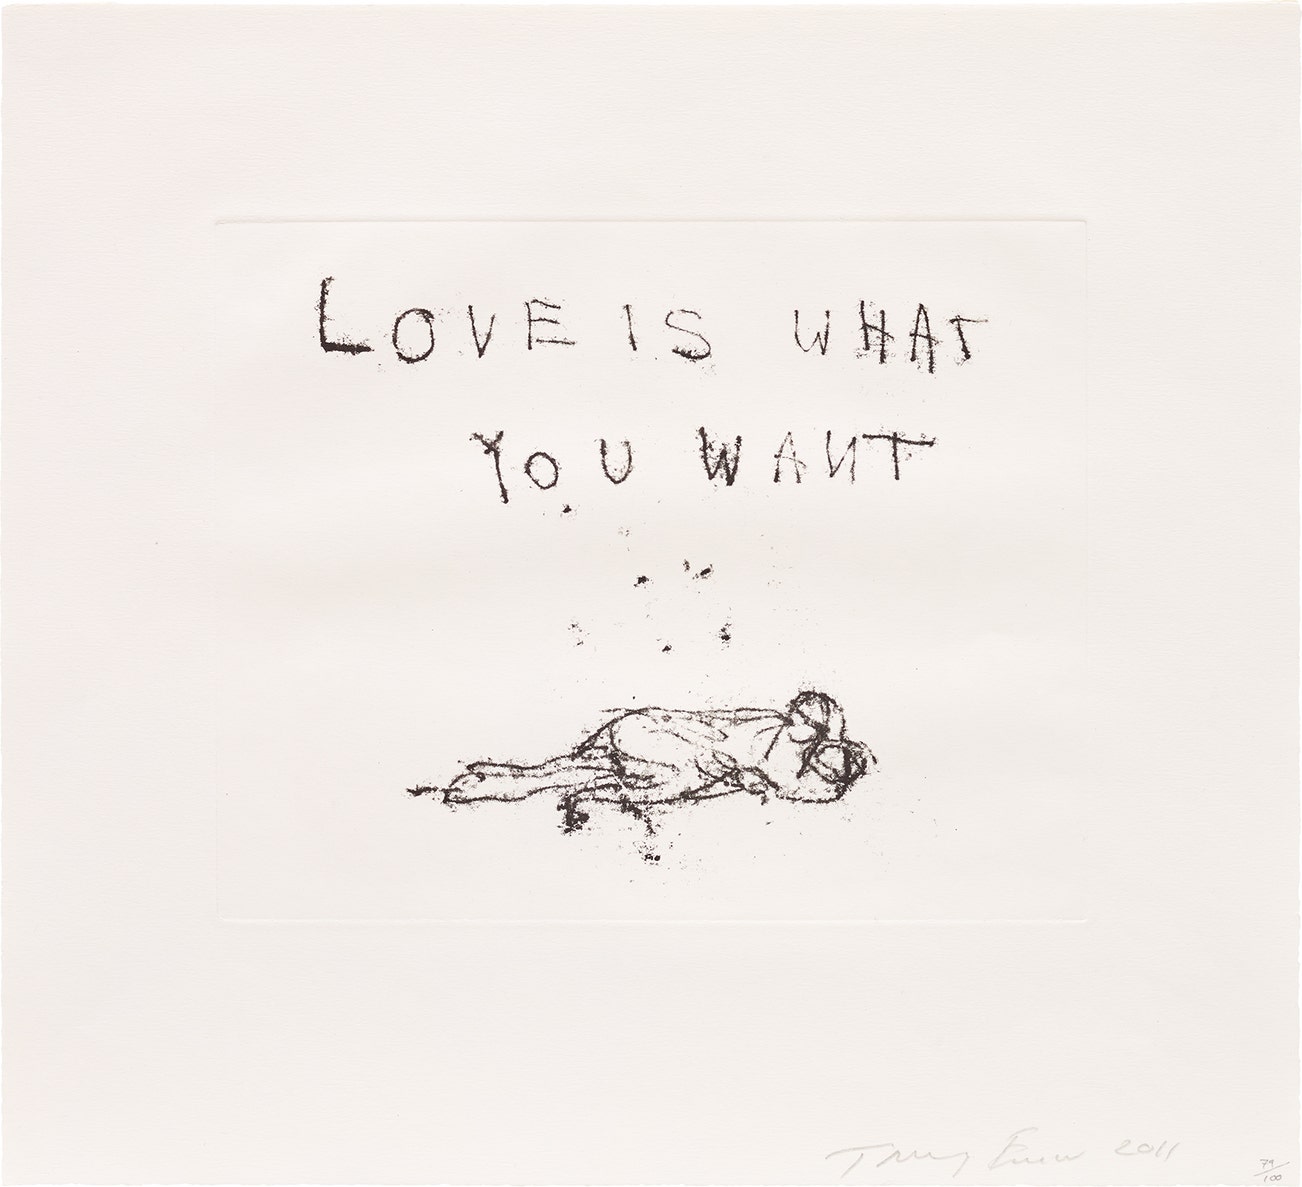 LOVE IS WHAT
YOU WANT
Tracey Emin 2011
79/100